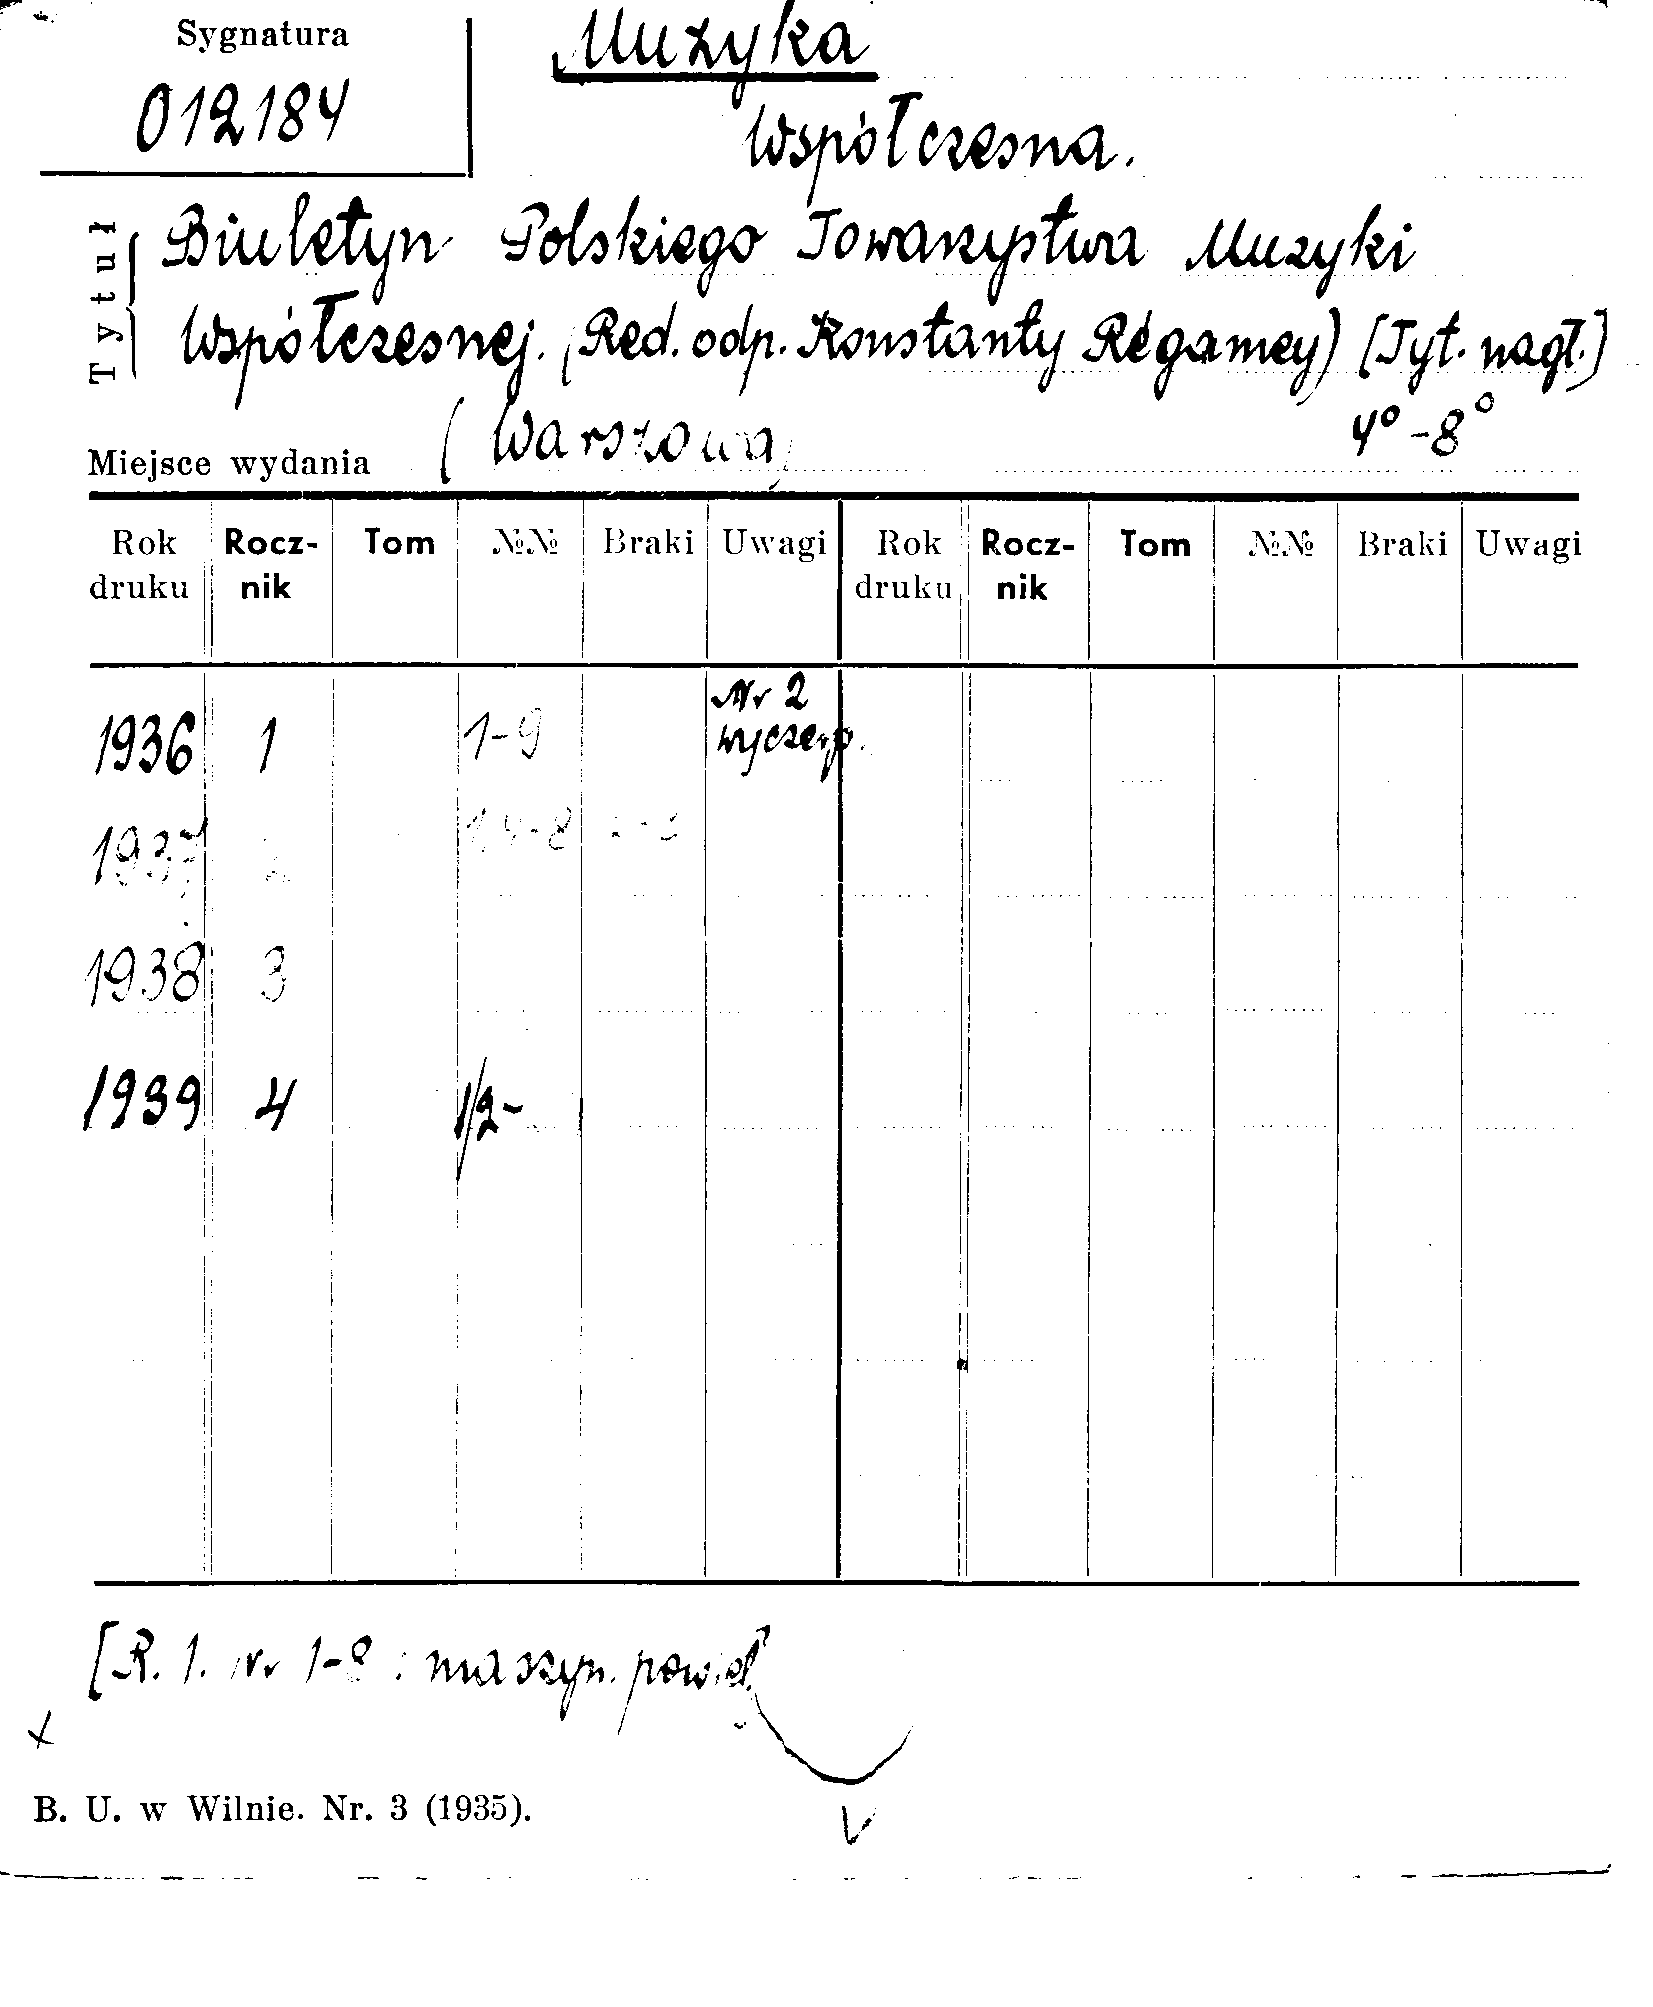 Sygnatura
012184
Muzyka
Współczesna.
Tytuł
Biuletyn Polskiego Towarzystwa Muzyki
Współczesnej. (Red. odp. Konstanty Régamey) [Tyt. nagł.]
Miejsce wydania (Warszawa) 4° - 8°
Rok druku Rocz-nik Tom №№ Braki Uwagi Rok druku Rocz-nik Tom №№ Braki Uwagi
1936 1 1-9 Nr 2 wyczerp.
1937 4-8
1938 3
1939 4 1/2-
[R. 1. Nr 1-8 : maszyn. powiel.
B. U. w Wilnie. Nr. 3 (1935).